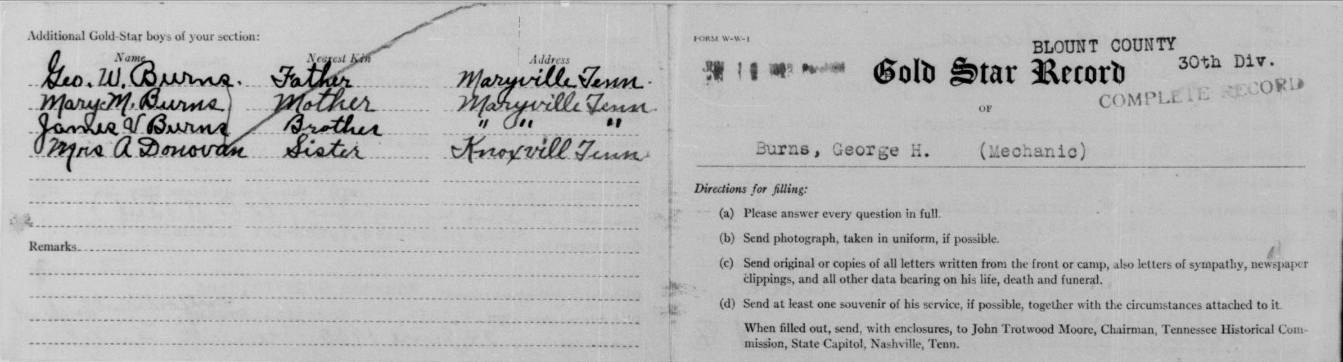 Additional Gold-Star boys of your section:
Name Nearest Kin Address
Geo. W. Burns. Father Maryville Tenn.
Mary M. Burns Mother Maryville Tenn
James V Burns Brother " " "
Mrs A Donovan Sister Knoxvill Tenn
Remarks
FORM W-W-1
BLOUNT COUNTY
30th Div.
Gold Star Record
OF
COMPLETE RECORD
Burns, George H. (Mechanic)
Directions for filling:
(a) Please answer every question in full.
(b) Send photograph, taken in uniform, if possible.
(c) Send original or copies of all letters written from the front or camp, also letters of sympathy, newspaper
clippings, and all other data bearing on his life, death and funeral.
(d) Send at least one souvenir of his service, if possible, together with the circumstances attached to it.
When filled out, send, with enclosures, to John Trotwood Moore, Chairman, Tennessee Historical Com-
mission, State Capitol, Nashville, Tenn.